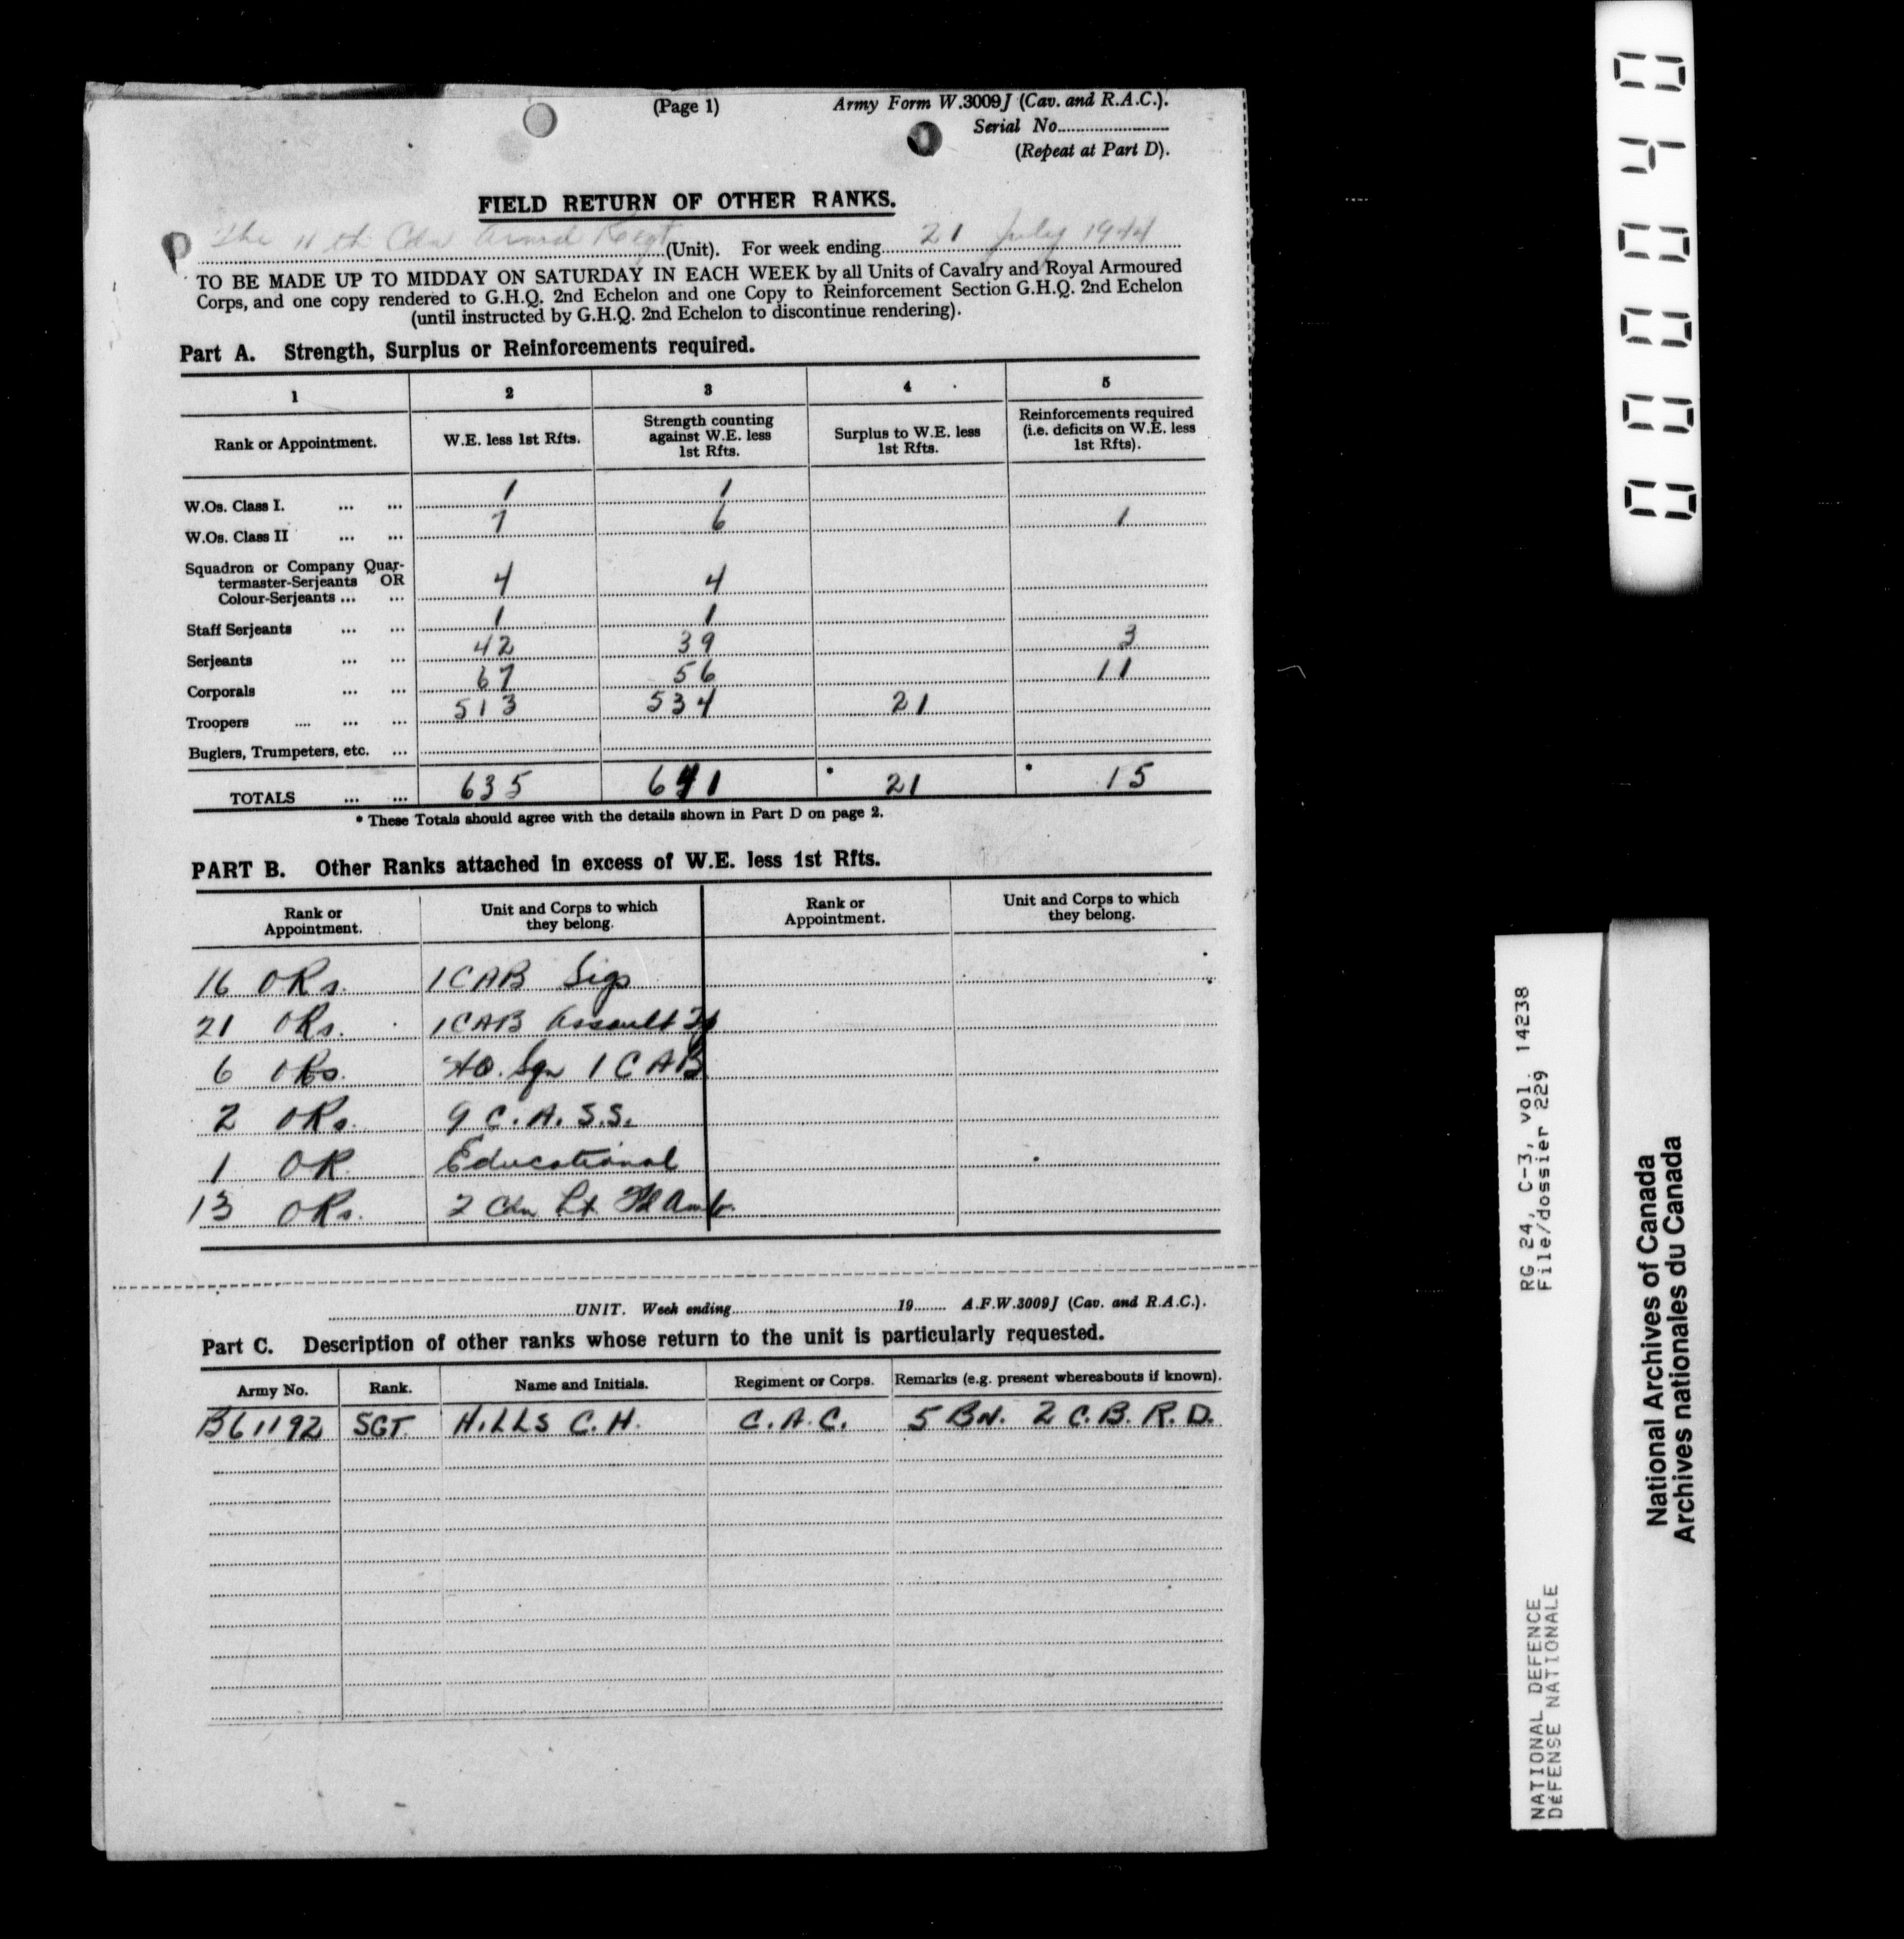 (Page 1)
Army Form W.3009J (Cav. and R.A.C.).
Serial No.
(Repeat at Part D).
FIELD RETURN OF OTHER RANKS.
The 11th Cdn Armd Regt (Unit). For week ending 21 July 1944
TO BE MADE UP TO MIDDAY ON SATURDAY IN EACH WEEK by all Units of Cavalry and Royal Armoured
Corps, and one copy rendered to G.H.Q. 2nd Echelon and one Copy to Reinforcement Section G.H.Q. 2nd Echelon
(until instructed by G.H.Q. 2nd Echelon to discontinue rendering).
Part A. Strength, Surplus or Reinforcements required.
1 2 3 4 5
Rank or Appointment. W.E. less 1st Rfts. Strength counting against W.E. less 1st Rfts. Surplus to W.E. less 1st Rfts. Reinforcements required (i.e. deficits on W.E. less 1st Rfts).
W.Os. Class I. ... ... 1 1
W.Os. Class II ... ... 7 6 1
Squadron or Company Quar-
termaster-Serjeants OR
Colour-Serjeants ... ... 4 4
Staff Serjeants ... ... 1 1
Serjeants ... ... 42 39 3
Corporals ... ... 67 56 11
Troopers .... ... ... 513 534 21
Buglers, Trumpeters, etc. ...
TOTALS ... ... 635 641 * 21 * 15
* These Totals should agree with the details shown in Part D on page 2.
PART B. Other Ranks attached in excess of W.E. less 1st Rfts.
Rank or Appointment. Unit and Corps to which they belong. Rank or Appointment. Unit and Corps to which they belong.
16 ORs. 1 CAB Sigs
21 ORs. 1 CAB Assault Tp
6 ORs. HQ. Sqn 1 C A B
2 ORs. 9 C.A.S.S.
1 OR. Educational
13 ORs. 2 Cdn Lt Fd Amb.
UNIT. Week ending 19 A.F.W.3009J (Cav. and R.A.C.).
Part C. Description of other ranks whose return to the unit is particularly requested.
Army No. Rank. Name and Initials. Regiment or Corps. Remarks (e.g. present whereabouts if known).
B61192 SGT. HILLS C.H. C.A.C. 5 BN. 2 C.B.R.D.
00040
RG 24, C-3, vol. 14238
File/dossier 229
NATIONAL DEFENCE
DÉFENSE NATIONALE
National Archives of Canada
Archives nationales du Canada